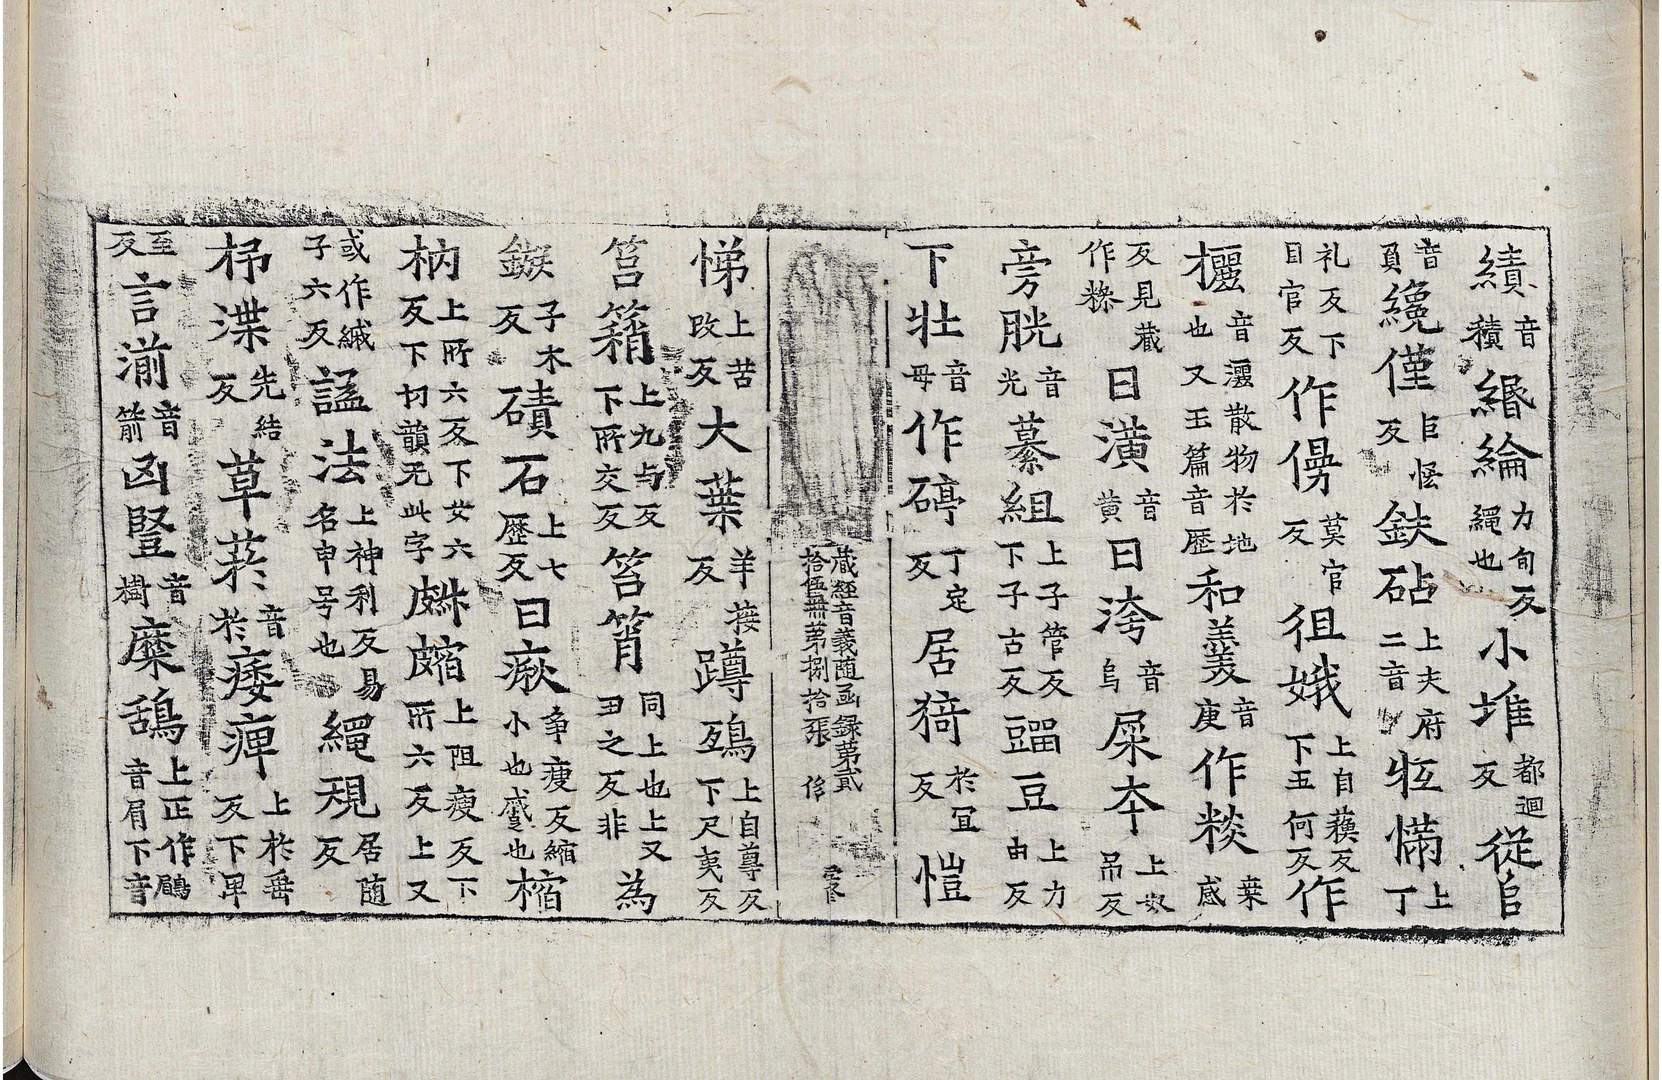 績音積緡綸力旬反繩也小堆都迴反從𠂤
音負纔僅巨恡反鈇砧上夫府二音㸦㒼上丁
礼反下目官反作㒓莫官反徂娥上自蘓反下五何反作
攦音灑散物於地也又玉篇音歴和義音庚作棪桒感
反見藏作橡曰潢音黄曰洿音烏屎夲上奴吊反
旁胱音光纂組上子管反下子古反䪼豆上力由反
下壯音母作碠丁定反居猗於宜反愷
藏經音義隨函録第貳拾伍冊第捌拾張
悌上苦改反大葉羊接反蹲鵄上自尊反下尺夷反
筥䈰上九与反下所交反筥筲同上也上又丑之反非為
鏃子木反磧石上七歷反曰瘷争瘦反縮小也感也樎
枘上所六反下女六反下切韻无此字䠞䠞上阻瘦反下所六反上又
或作縬子六反諡法上神利反易名申号也繩䂓居随反
杼渫先結反草菸音於痿痺上於垂反下卑
至反言湔音箭凶豎音樹麋鵄上正作鴟音眉下音